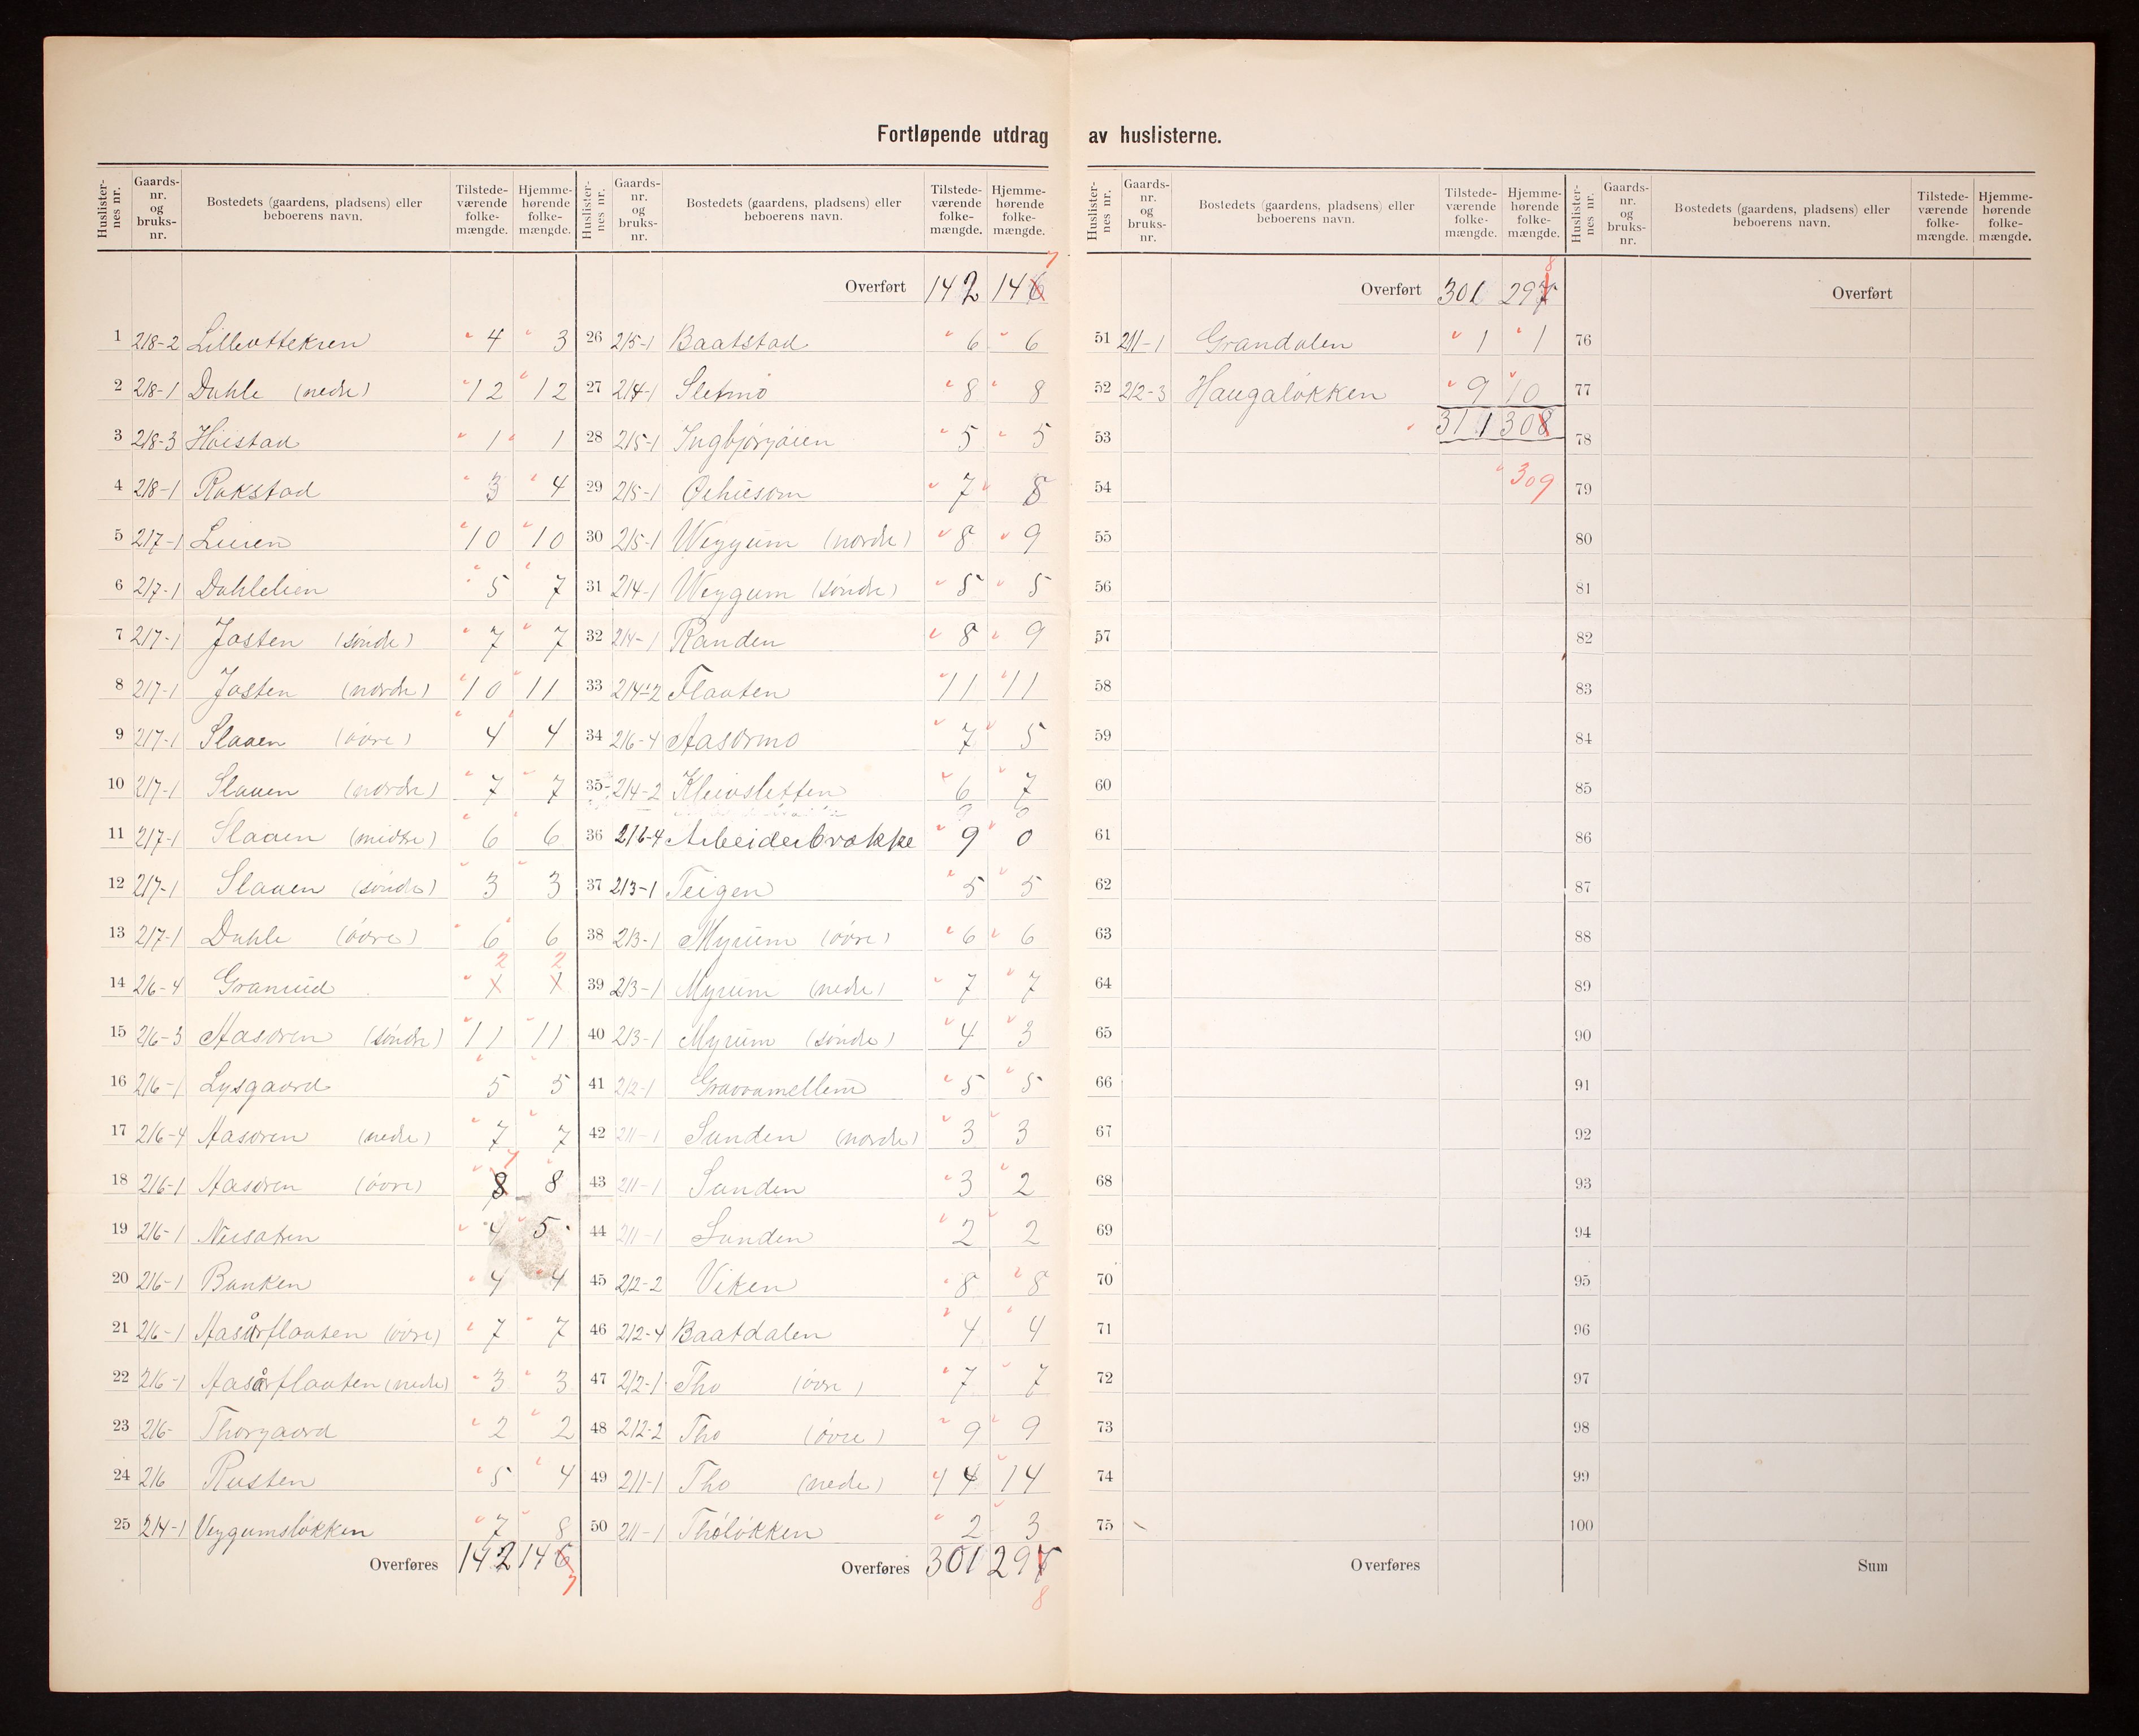 Fortløpende utdrag av huslisterne.
Huslister-nes nr. | Gaards-nr. og bruks-nr. | Bostedets (gaardens, pladsens) eller beboerens navn. | Tilstede-værende folke-mængde. | Hjemme-hørende folke-mængde.
1 218-2 Lilleottekren 4 3
2 218-1 Dahle (nedre) 12 12
3 218-3 Höistad 1 1
4 218-1 Rokstad 3 4
5 217-1 10 10
6 217-1 Dahlelien 5 7
7 217-1 Josten (söndre) 7 7
8 217-1 Josten (nordre) 10 11
9 217-1 Slaaen (övre) 4 4
10 217-1 Slaaen (nordre) 7 7
11 217-1 Slaaen (midtre) 6 6
12 217-1 Slaaen (söndre) 3 3
13 217-1 Dahle (övre) 6 6
14 216-4 Granuud 2 2
15 216-3 Aasoren (söndre) 11 11
16 216-1 Lysgaard 5 5
17 216-4 Aasoren (nedre) 7 7
18 216-1 Aasoren (övre) 8 7 8
19 216-1 4 5
20 216-1 Banken 4 4
21 216-1 Aasårflaaten (övre) 7 7
22 216-1 Aasårflaaten (nedre) 3 3
23 216- Thorgaard 2 2
24 216 Rusten 5 4
25 214-1 Veggumslökken 7 8
Overføres 142 146 7
Huslister-nes nr. | Gaards-nr. og bruks-nr. | Bostedets (gaardens, pladsens) eller beboerens navn. | Tilstede-værende folke-mængde. | Hjemme-hørende folke-mængde.
Overført 142 146 7
26 215-1 Baatstad 6 6
27 214-1 Sletmo 8 8
28 215-1 5 5
29 215-1 7 8
30 215-1 Weggum (nordre) 8 9
31 214-1 Weggum (söndre) 5 5
32 214-1 Randen 8 9
33 214-2 Flaaten 11 11
34 216-4 Aasormo 7 5
35 214-2 Kleivsletten 6 7
36 216-4 Arbeiderbrakke 9 0
37 213-1 Teigen 5 5
38 213-1 Myrum (övre) 6 6
39 213-1 Myrum (nedre) 7 7
40 213-1 Myrum (söndre) 4 3
41 212-1 5 5
42 211-1 Sanden (nordre) 3 3
43 211-1 Sanden 3 2
44 211-1 Sanden 2 2
45 212-2 Viken 8 8
46 212-4 Baatdalen 4 4
47 212-1 Tho (övre) 7 7
48 212-2 Tho (övre) 9 9
49 211-1 Tho (nedre) 14 14
50 211-1 Tholökken 2 3
Overføres 301 297 8
Huslister-nes nr. | Gaards-nr. og bruks-nr. | Bostedets (gaardens, pladsens) eller beboerens navn. | Tilstede-værende folke-mængde. | Hjemme-hørende folke-mængde.
Overført 301 297 8
51 211-1 Grandalen 1 1
52 212-3 Haugalökken 9 10
53 311 308
54 309
55
56
57
58
59
60
61
62
63
64
65
66
67
68
69
70
71
72
73
74
75
Overføres
Huslister-nes nr. | Gaards-nr. og bruks-nr. | Bostedets (gaardens, pladsens) eller beboerens navn. | Tilstede-værende folke-mængde. | Hjemme-hørende folke-mængde.
Overført
76
77
78
79
80
81
82
83
84
85
86
87
88
89
90
91
92
93
94
95
96
97
98
99
100
Sum